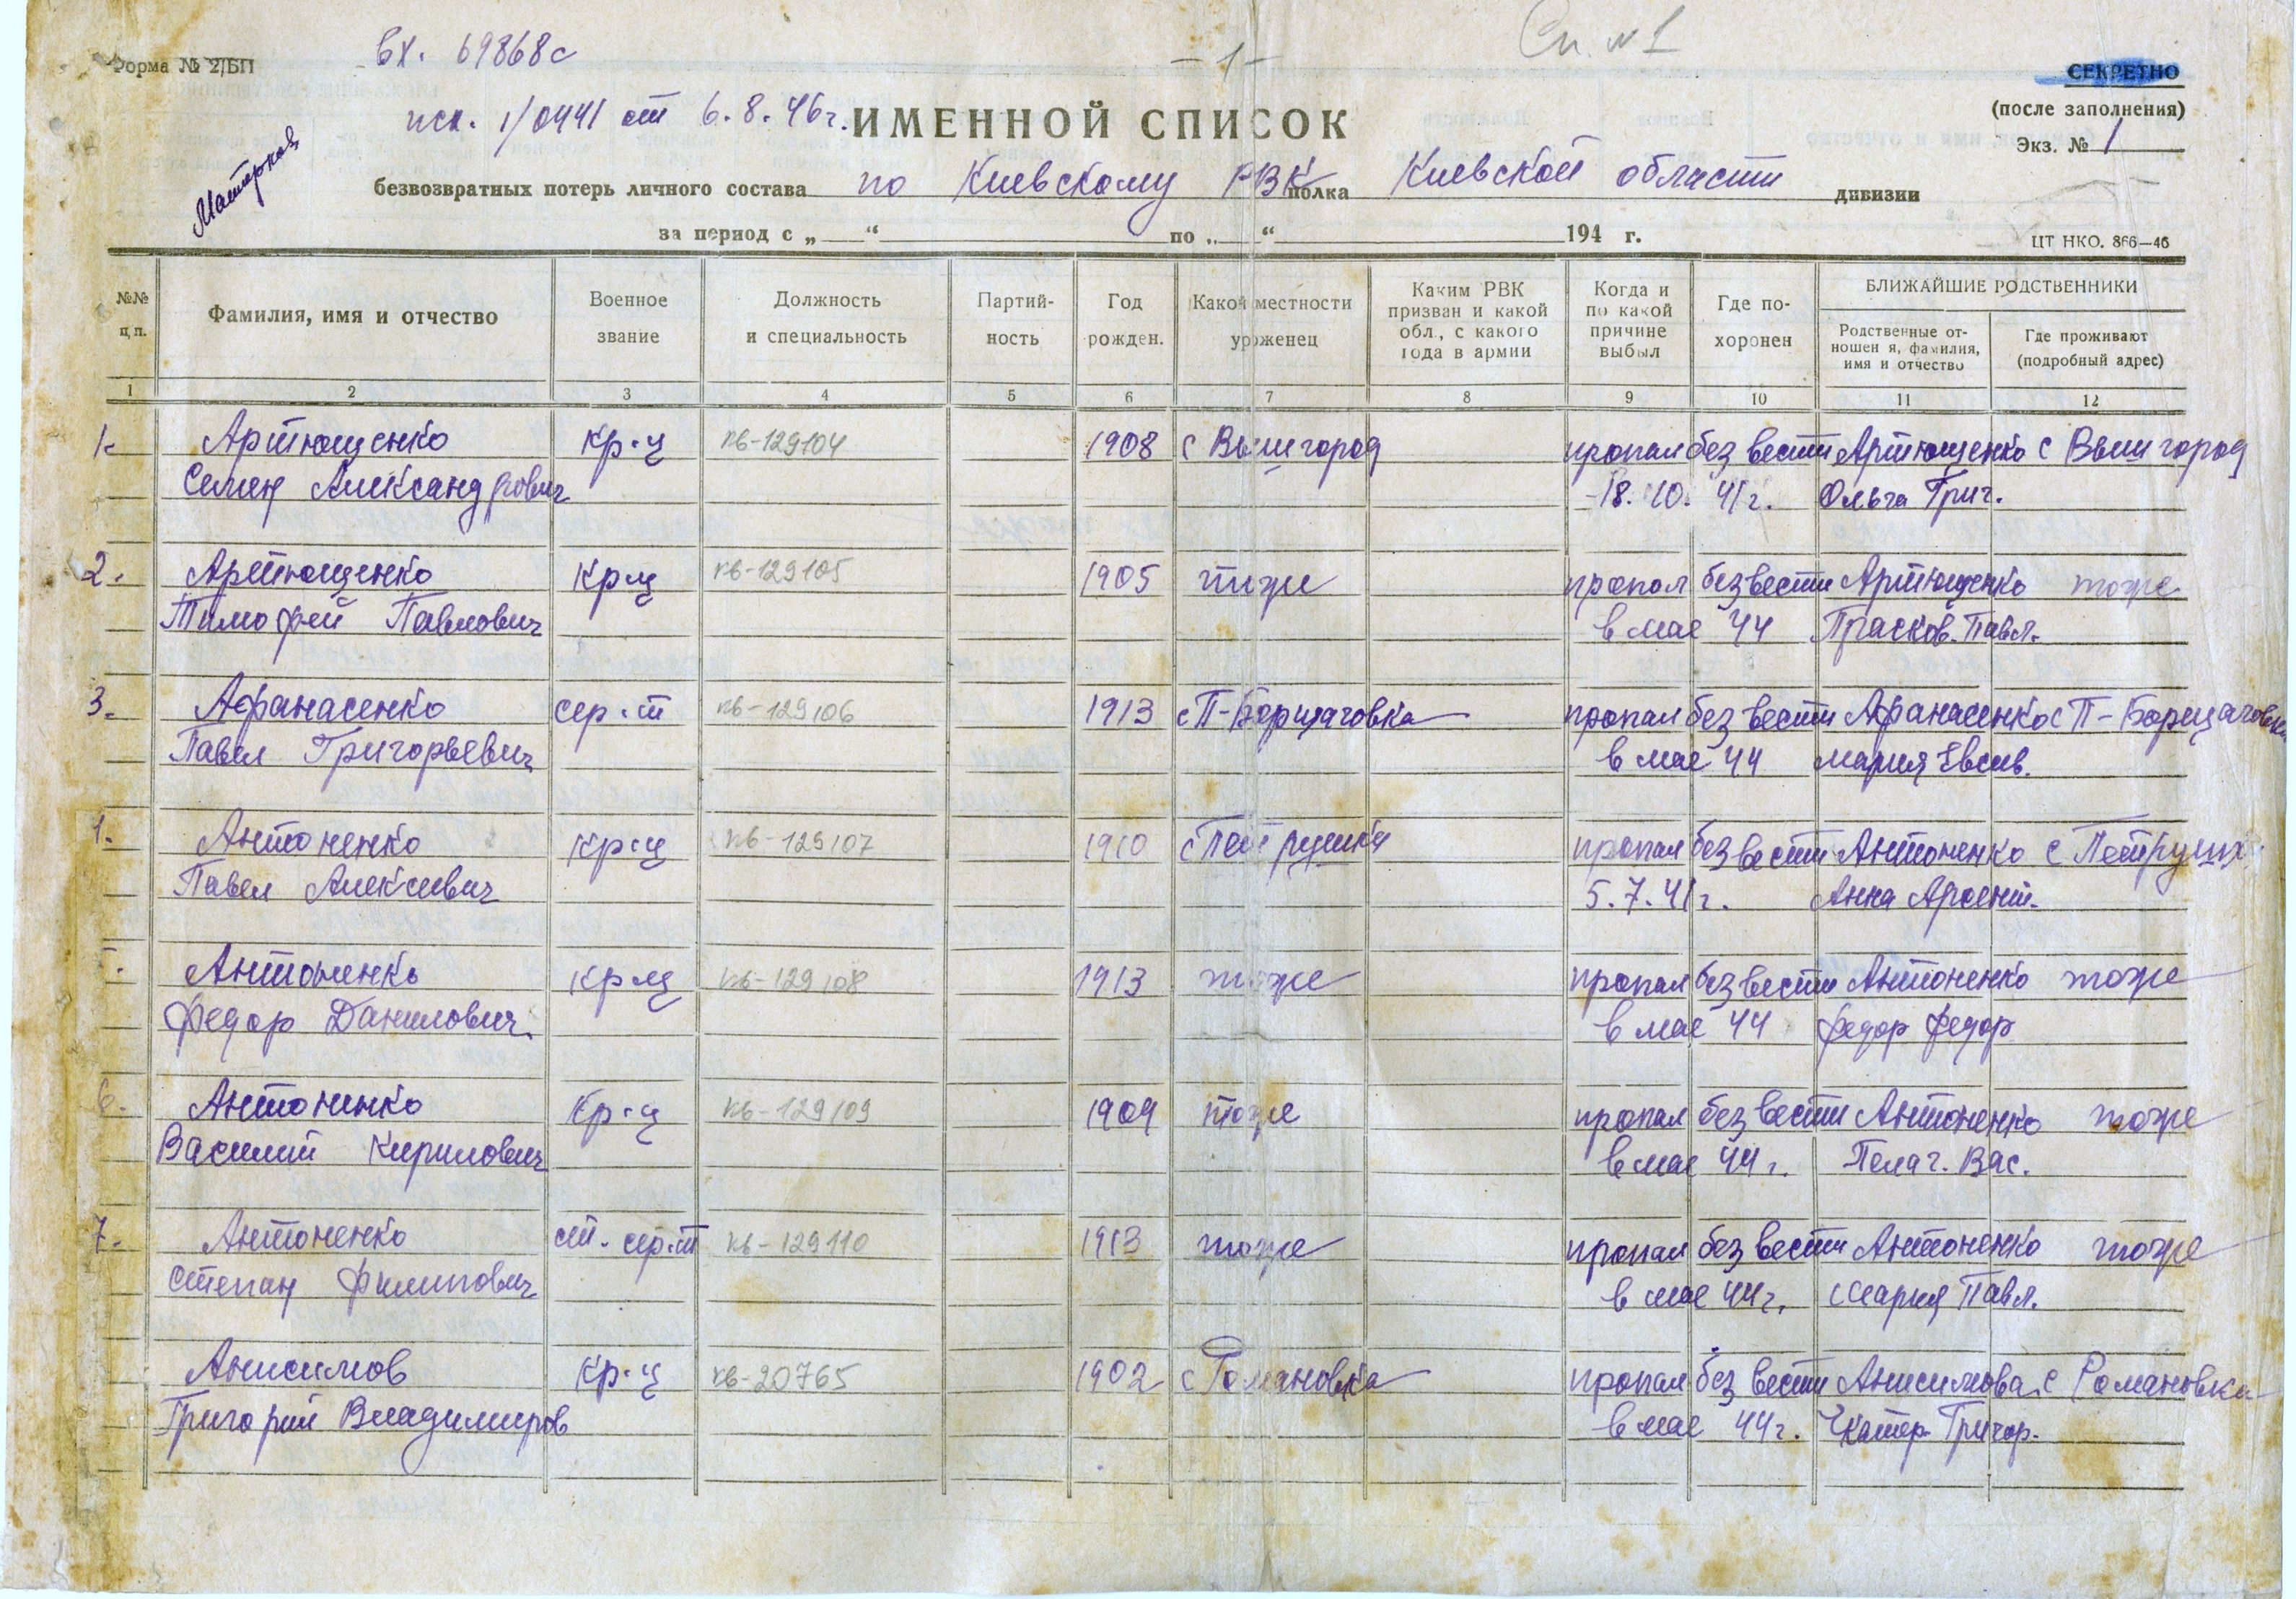 Форма № 2/БП
вх. 69868с
- 1 -
Сп. №1
СЕКРЕТНО
(после заполнения)
Экз. № 1
исх. 1/0441 от 6.8.46г.
ИМЕННОЙ СПИСОК
безвозвратных потерь личного состава по Киевскому РВК полка Киевской области дивизии
за период с „ “ по „ “ 194 г.
ЦТ НКО. 866—46
№№ п.п.
Фамилия, имя и отчество
Военное звание
Должность и специальность
Партий-ность
Год рожден.
Какой местности уроженец
Каким РВК призван и какой обл., с какого года в армии
Когда и по какой причине выбыл
Где по-хоронен
БЛИЖАЙШИЕ РОДСТВЕННИКИ
Родственные от-ношен я, фамилия, имя и отчество
Где проживают (подробный адрес)
1 2 3 4 5 6 7 8 9 10 11 12
1. Артющенко кр-ц кв-129104 1908 с Вышгород пропал без вести Артющенко с Вышгород
Семен Александрович 18.10.41г. Ольга Григ.
2. Артющенко кр-ц кв-129105 1905 тоже пропал без вести Артющенко тоже
Тимофей Павлович в мае 44 Прасков. Павл.
3. Афанасенко сер-т кв-129106 1913 с П-Борщаговка пропал без вести Афанасенко с П-Борщаговка
Павел Григорьевич в мае 44 Мария Евсив.
Антоненко кр-ц кв-129107 1910 с Петрушки пропал без вести Антоненко с Петрушк
Павел Алексиевич 5.7.41г. Анна Арсент.
Антоненко кр-ц кв-129108 1913 тоже пропал без вести Антоненко тоже
Федор Данилович в мае 44 Федор Федор
6. Антоненко кр-ц кв-129109 1909 тоже пропал без вести Антоненко тоже
Василий Кирилович в мае 44г. Пелаг. Вас.
7. Антоненко ст. сер-т кв-129110 1913 тоже пропал без вести Антоненко тоже
Степан Филипович в мае 44г. Мария Павл.
Анисимов кр-ц кв-20765 1902 с Романовка пропал без вести Анисимова с Романовка
Григорий Владимиров в мае 44г. Екатер. Григор.